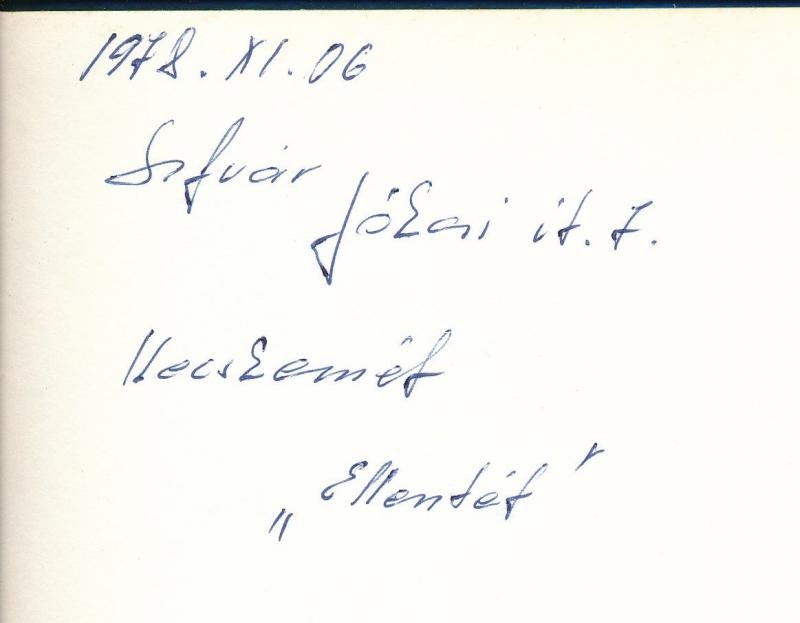 1978. XI. 06
Szfvár
Jókai it. 7.
Kecskemét
„Ellentét"